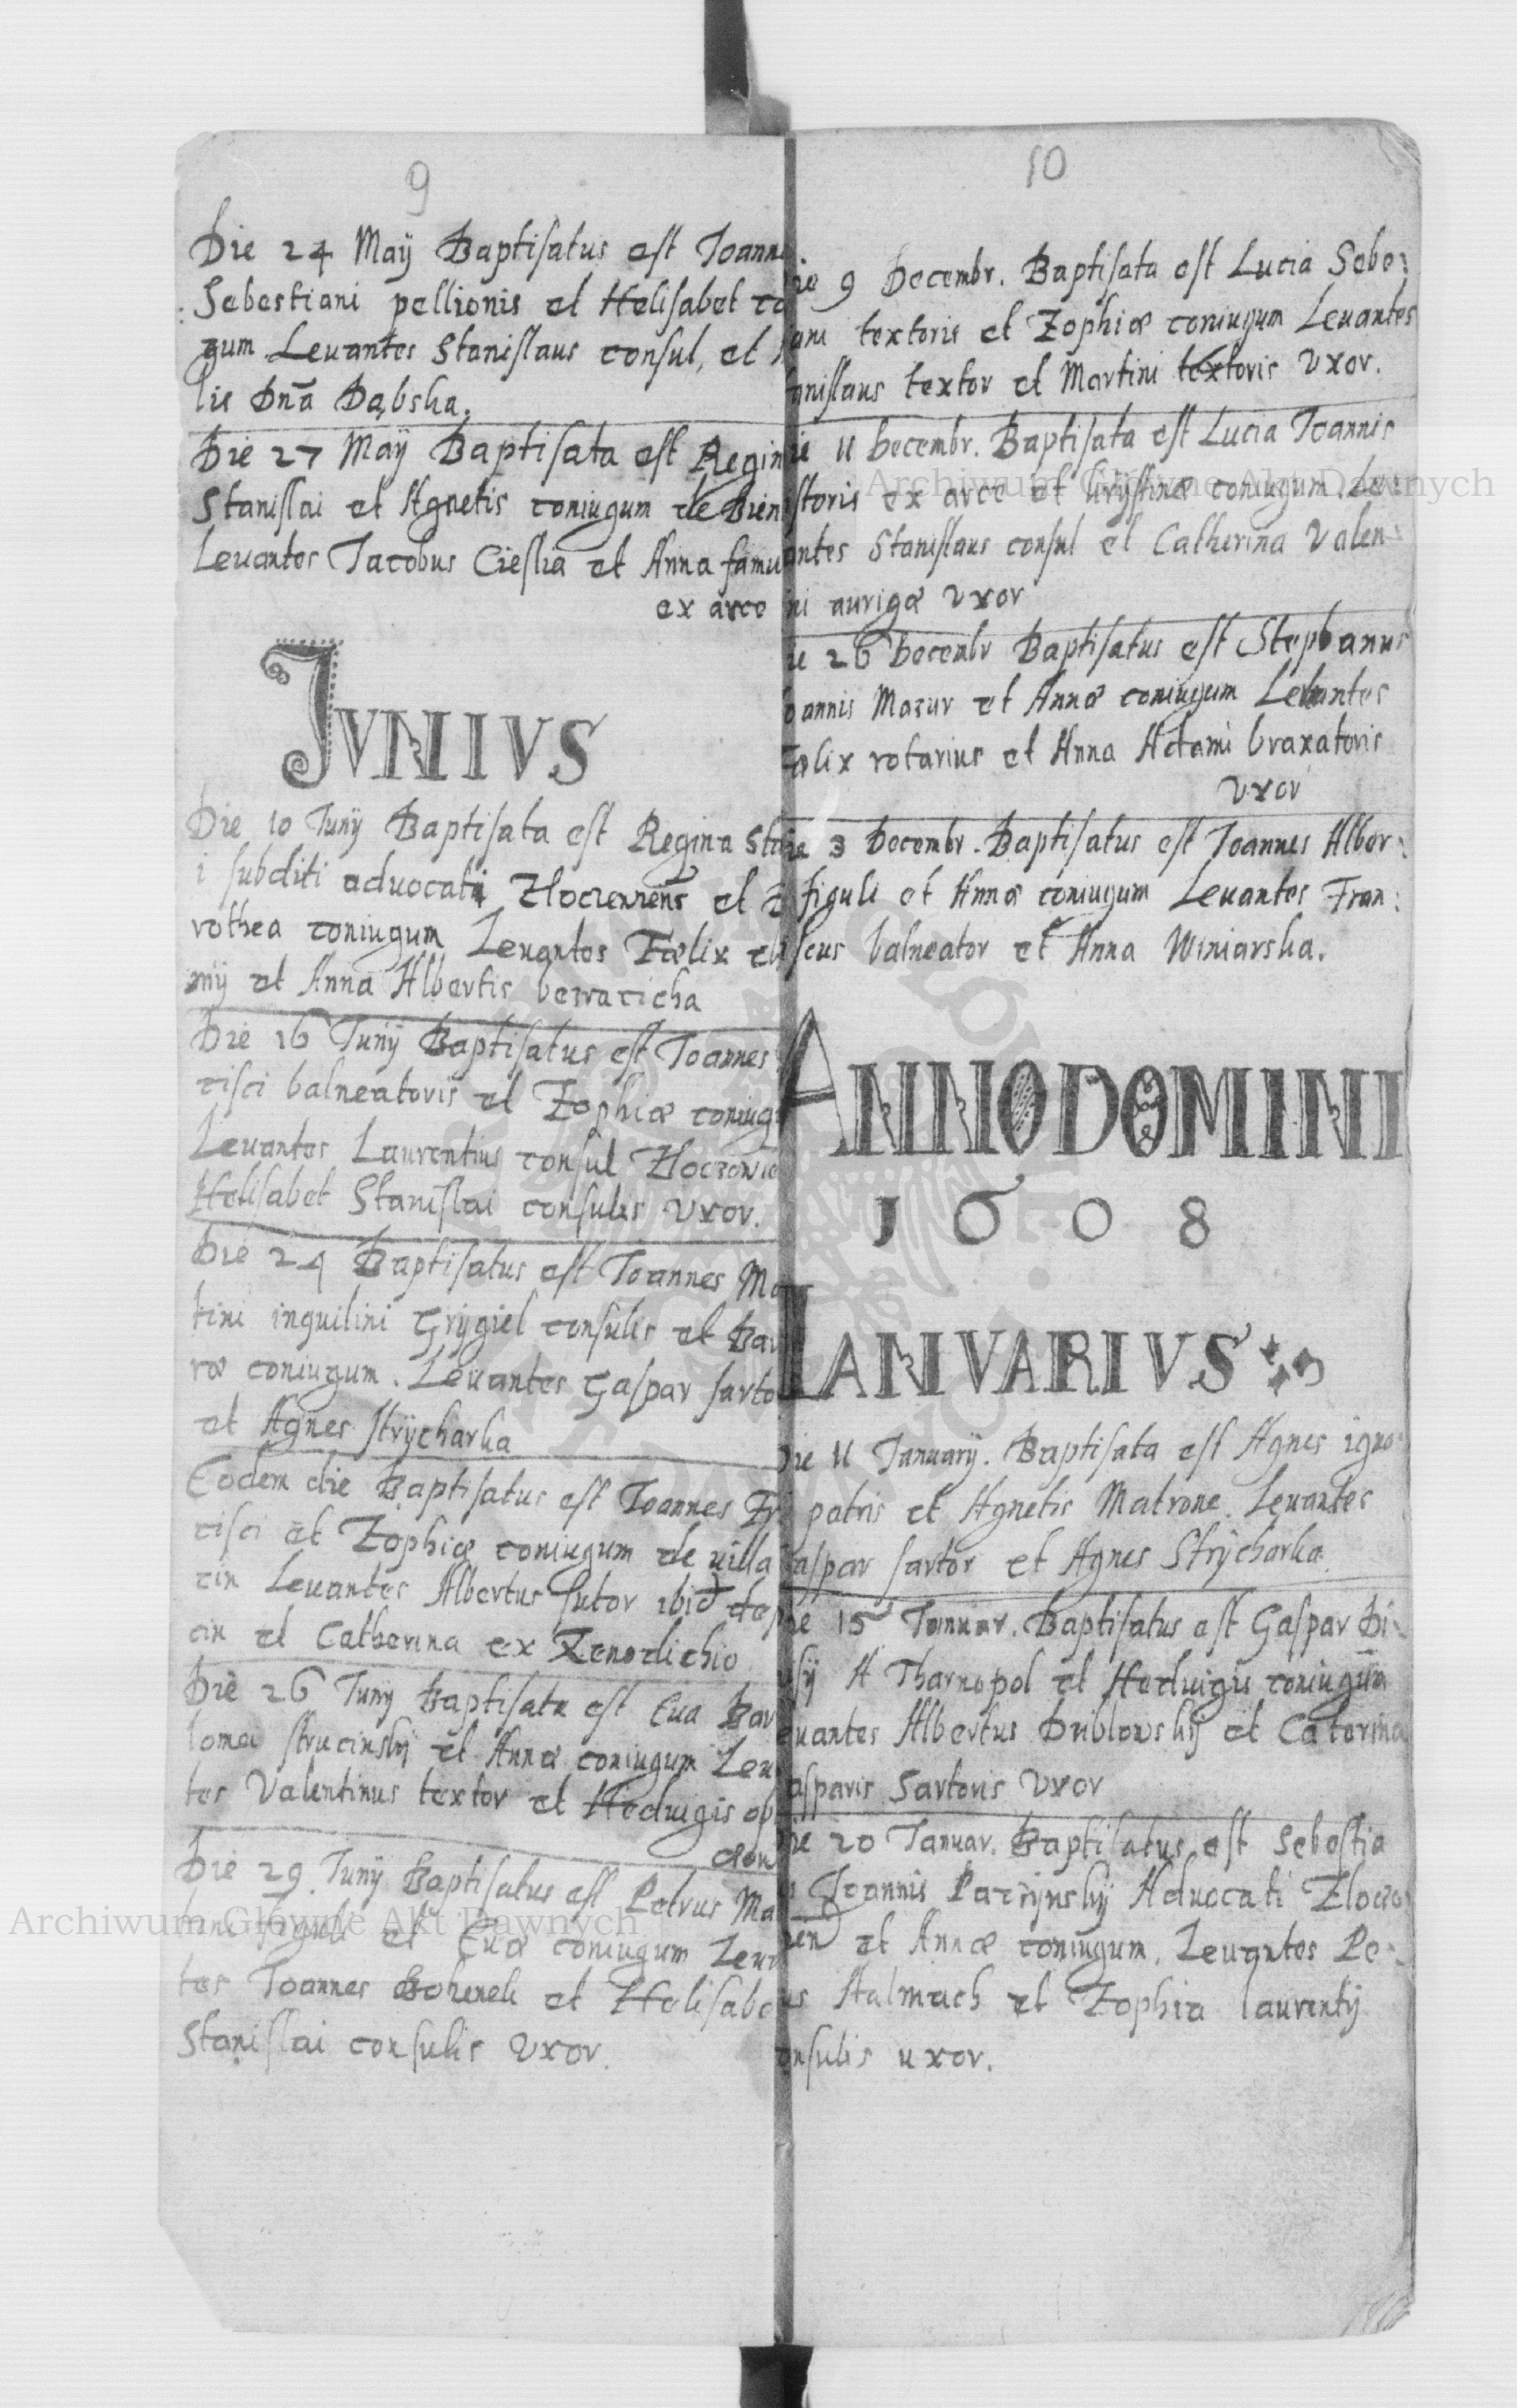 9
Die 24 Maÿ Baptisatus est Joann
Sebestiani pellionis et Helisabet co
gum Levantes Stanislaus consul, et
lie Dnā Dąbska.
Die 27 Maÿ Baptisata est Regin
Stanislai et Agnetis coniugum de Bien
Levantes Jacobus Cieslia et Anna famu
ex arce
JVNIVS
Die 10 Junÿ Baptisata est Regina Sta
i subditi advocati Zloczenens et
rothea coniugum Levantes Fælix
mÿ et Anna Albertis
Die 16 Junÿ Baptisatus est Joannes
cisci balneatoris et Zophiæ coniug
Levantes Laurentius consul Zloczovie
Helisabet Stanislai consulis Vxor.
Die 24 Baptisatus est Joannes Ma
tini inquilini Grÿgiel consulis et Bar
ræ coniugum. Levantes Gaspar sarto
et Agnes strÿcharka
Eodem die Baptisatus est Joannes Fr
cisci et Zophiæ coniugum de villa
cin Levantes Albertus sutor ibid de
cin et Catherina ex Xenodichio
Die 26 Junÿ Baptisata est Eva Bar
lomei strucinskÿ et Annæ coniugum Lev
tes Valentinus textor et Hedvigis op
Die 29 Junÿ Baptisatus est Petrus Ma
tini figuli et Evæ coniugum Lev
tes Joannes et Helisabe
Stanislai consulis Vxor.
10
ie 9 Decembr. Baptisata est Lucia Sebe:
iani textoris et Zophiæ coniugum Levantes
anislaus textor et Martini textoris Vxor.
ie 11 Decembr. Baptisata est Lucia Joannis
storis ex arce et Krÿstinæ coniugum. Lev
antes Stanislaus consul et Catherina Valen
ni aurigæ Vxor
ie 26 Decembr Baptisatus est Stephanus
oannis Mazur et Annæ coniugum Levantes
ælix rotarius et Anna Adami braxatoris
Vxor
ie 3 Decembr. Baptisatus est Joannes Alber:
figuli et Annæ coniugum Levantes Fran:
scus balneator et Anna Winiarska.
ANNO DOMINI
1608
IANVARIVS
Die 11 Januarÿ. Baptisata est Agnes igno
patris et Agnetis Matrone. Levantes
aspar sartor et Agnes Strÿcharka
ie 15 Januar. Baptisatus est Gaspar Di
isÿ A Tharnopol et Hedvigis coniugum
evantes Albertus Dublowskÿ et Caterina
asparis Sartoris Vxor
Die 20 Januar. Baptisatus est Sebestia
s Joannis Paczÿnskÿ Advocati Zloczo
nen et Annæ coniugum. Levantes Pe
us Halmach et Zophia laurentÿ
onsulis uxor.
Archiwum Główne Akt Dawnych
Archiwum Główne Akt Dawnych